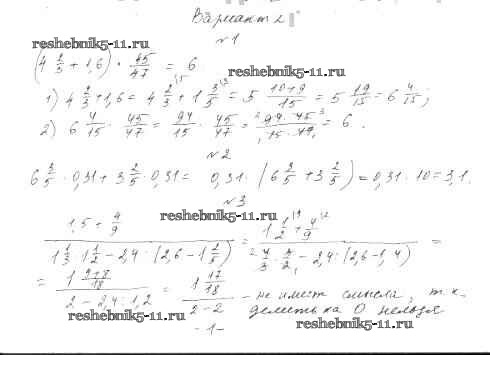 Вариант 2
№1
reshebnik5-11.ru
(4 2/3 + 1,6) · 45/47 = 6
reshebnik5-11.ru
1) 4 2/3 + 1,6 = 4 2/3 + 1 3/5 = 5 (10+9)/15 = 5 19/15 = 6 4/15;
2) 6 4/15 · 45/47 = 94/15 · 45/47 = (94·45)/(15·47) = 6.
№2
6 3/5 · 0,31 + 3 2/5 · 0,31 = 0,31 · (6 3/5 + 3 2/5) = 0,31 · 10 = 3,1.
№3
reshebnik5-11.ru
(1,5 + 4/9)/(1 1/3 · 1 1/2 − 2,4 · (2,6 − 1 2/5)) = (1 1/2 + 4/9)/(4/3 · 3/2 − 2,4 · (2,6 − 1,4)) =
= (1 (9+8)/18)/(2 − 2,4 : 1,2) = (1 17/18)/(2 − 2) – не имеет смысла, т.к. делить на 0 нельзя
reshebnik5-11.ru
reshebnik5-11.ru
- 1 -